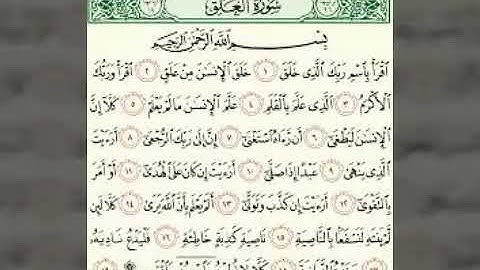 سُورَةُ الْعَلَقِ
بِسْمِ اللَّهِ الرَّحْمَٰنِ الرَّحِيمِ
ٱقْرَأْ بِٱسْمِ رَبِّكَ ٱلَّذِى خَلَقَ ١ خَلَقَ ٱلْإِنسَٰنَ مِنْ عَلَقٍ ٢ ٱقْرَأْ وَرَبُّكَ
ٱلْأَكْرَمُ ٣ ٱلَّذِى عَلَّمَ بِٱلْقَلَمِ ٤ عَلَّمَ ٱلْإِنسَٰنَ مَا لَمْ يَعْلَمْ ٥ كَلَّآ إِنَّ
ٱلْإِنسَٰنَ لَيَطْغَىٰٓ ٦ أَن رَّءَاهُ ٱسْتَغْنَىٰٓ ٧ إِنَّ إِلَىٰ رَبِّكَ ٱلرُّجْعَىٰٓ ٨ أَرَءَيْتَ
ٱلَّذِى يَنْهَىٰ ٩ عَبْدًا إِذَا صَلَّىٰٓ ١٠ أَرَءَيْتَ إِن كَانَ عَلَى ٱلْهُدَىٰٓ ١١ أَوْ أَمَرَ
بِٱلتَّقْوَىٰٓ ١٢ أَرَءَيْتَ إِن كَذَّبَ وَتَوَلَّىٰٓ ١٣ أَلَمْ يَعْلَم بِأَنَّ ٱللَّهَ يَرَىٰ ١٤ كَلَّا لَئِن
لَّمْ يَنتَهِ لَنَسْفَعًۢا بِٱلنَّاصِيَةِ ١٥ نَاصِيَةٍ كَٰذِبَةٍ خَاطِئَةٍ ١٦ فَلْيَدْعُ نَادِيَهُۥ